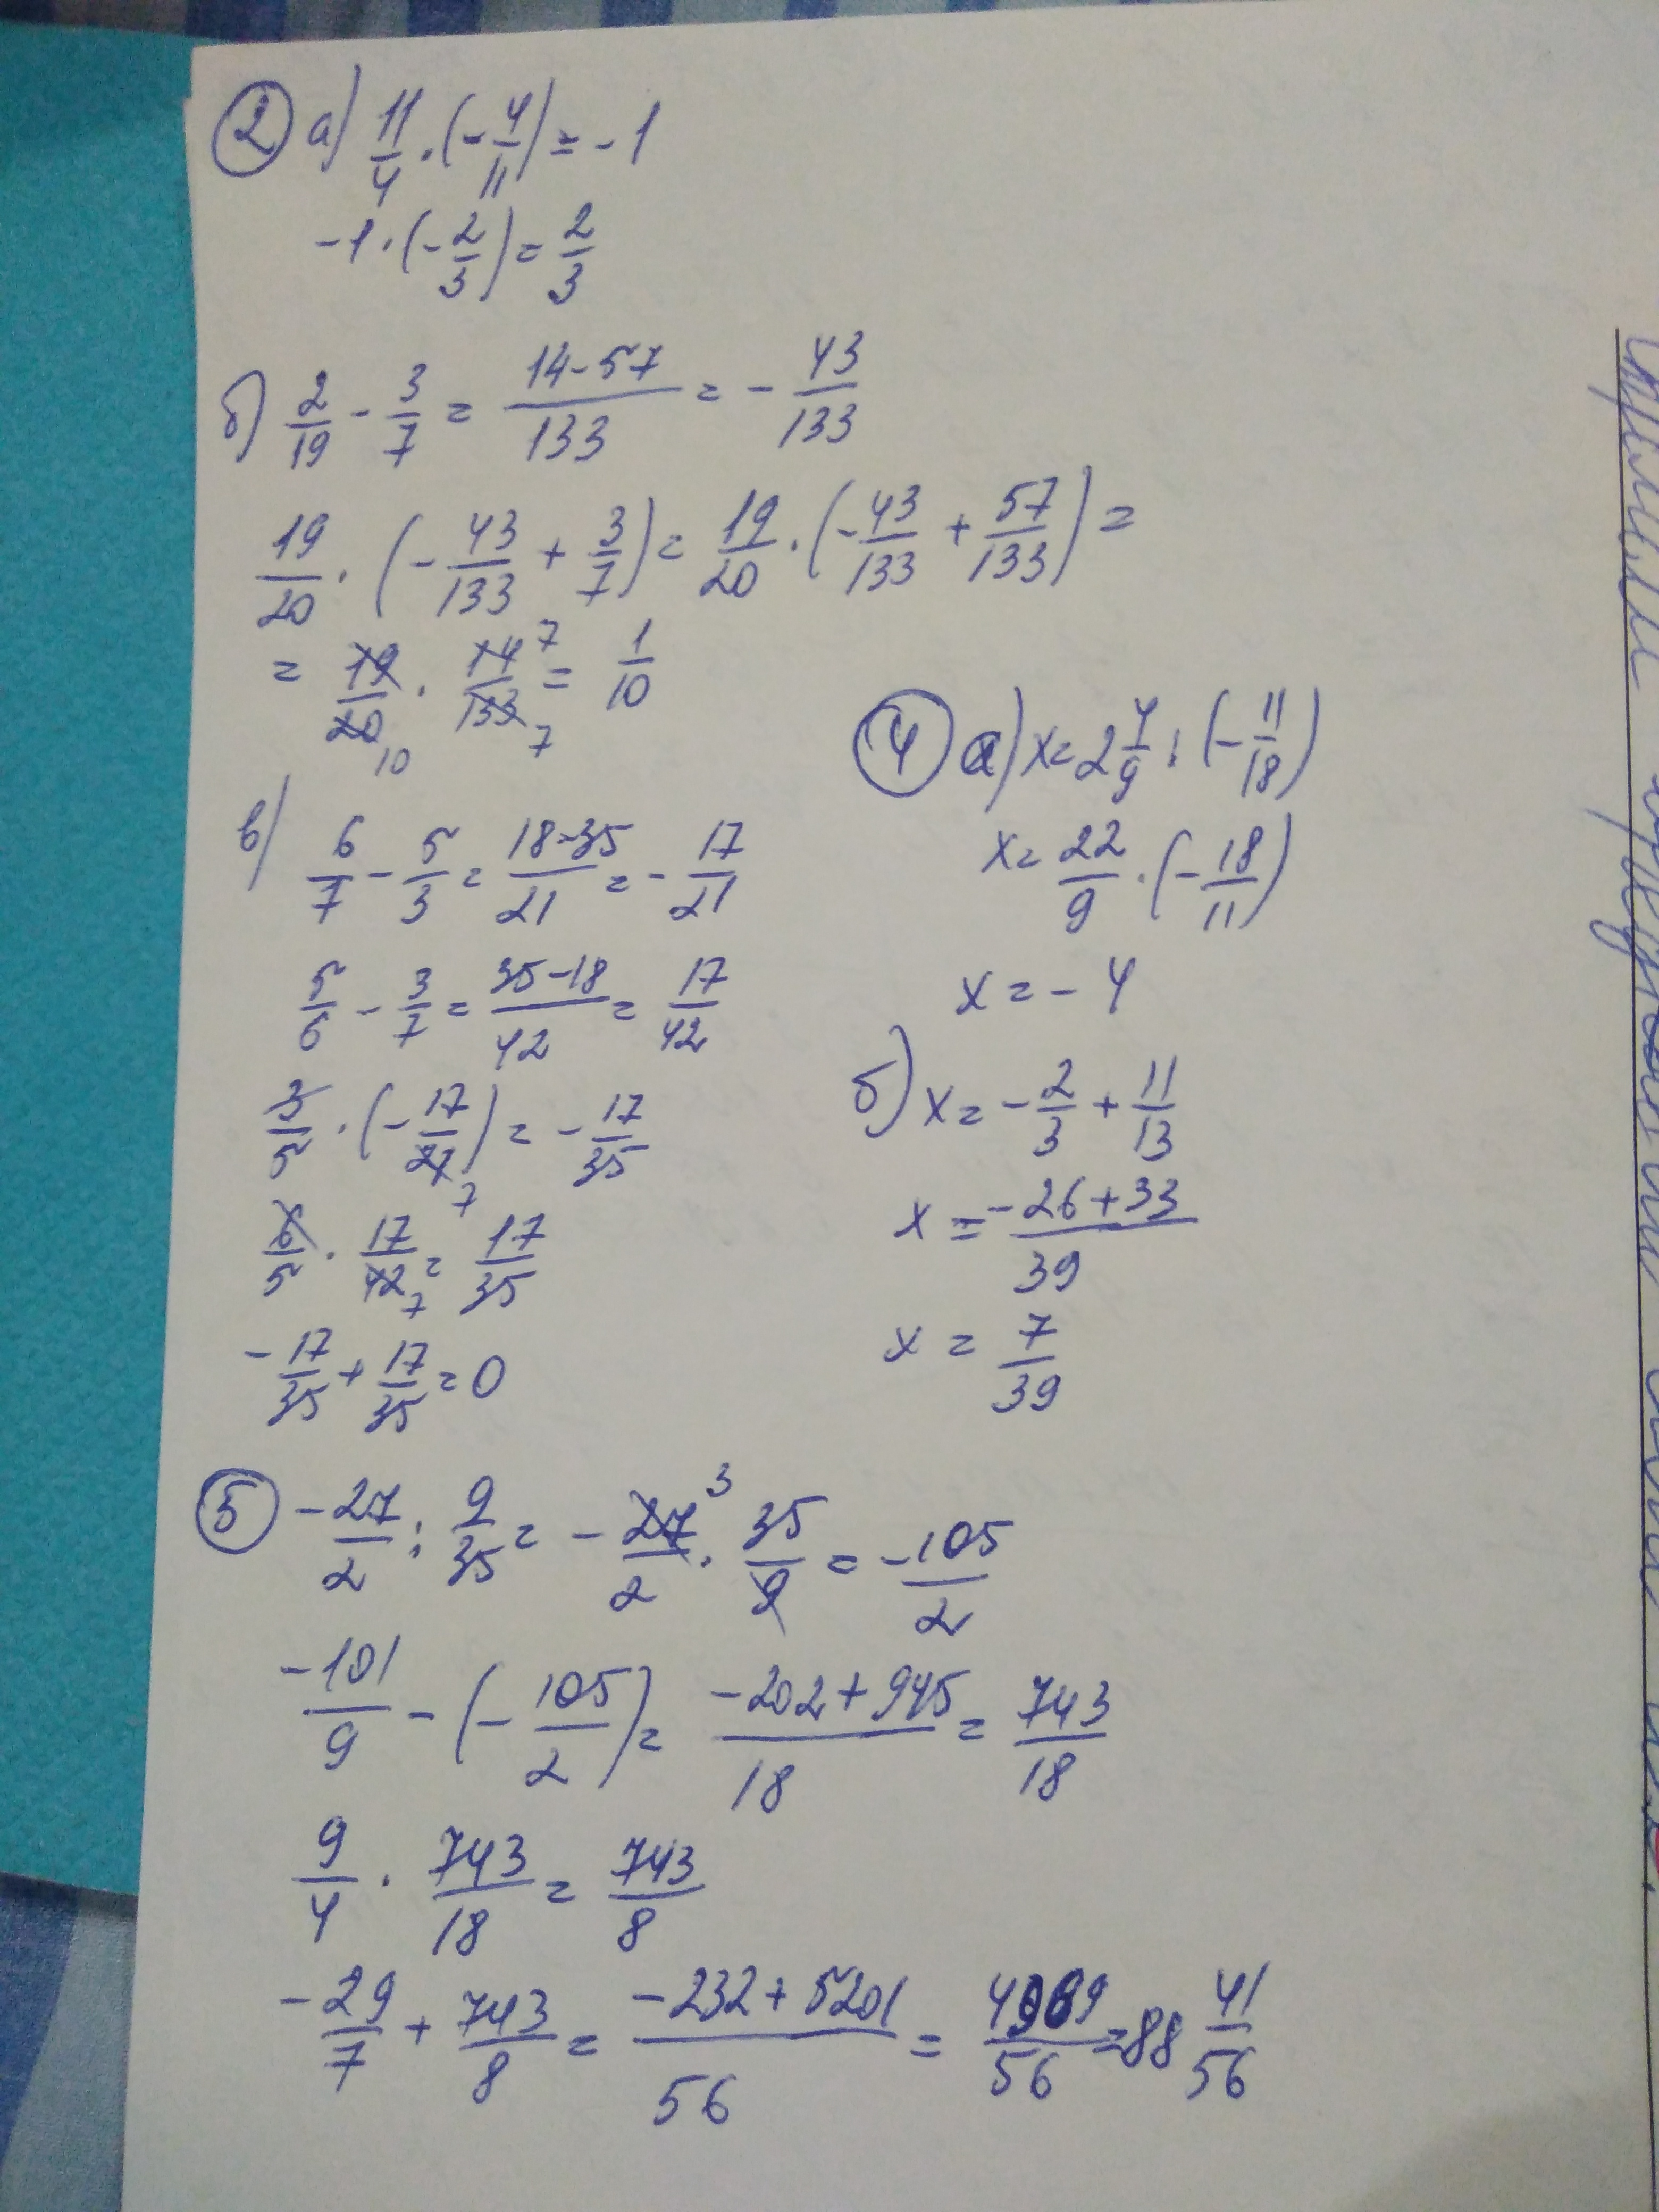 2 а) 11/4 · (-4/11) = -1
-1 · (-2/3) = 2/3
б) 2/19 - 3/7 = 14-57/133 = -43/133
19/20 · (-43/133 + 3/7) = 19/20 · (-43/133 + 57/133) =
= 19/20 10 · 14/133 7 7 = 1/10
в) 6/7 - 5/3 = 18-35/21 = -17/21
5/6 - 3/7 = 35-18/42 = 17/42
3/5 · (-17/21 7) = -17/35
6/5 · 17/42 7 = 17/35
-17/35 + 17/35 = 0
4 а) x = 2 4/9 : (-11/18)
x = 22/9 · (-18/11)
x = -4
б) x = -2/3 + 11/13
x = -26+33/39
x = 7/39
5 -27/2 : 9/35 = -27 3/2 · 35/9 = -105/2
-101/9 - (-105/2) = -202+945/18 = 743/18
9/4 · 743/18 = 743/8
-29/7 + 743/8 = -232+5201/56 = 4969/56 = 88 41/56